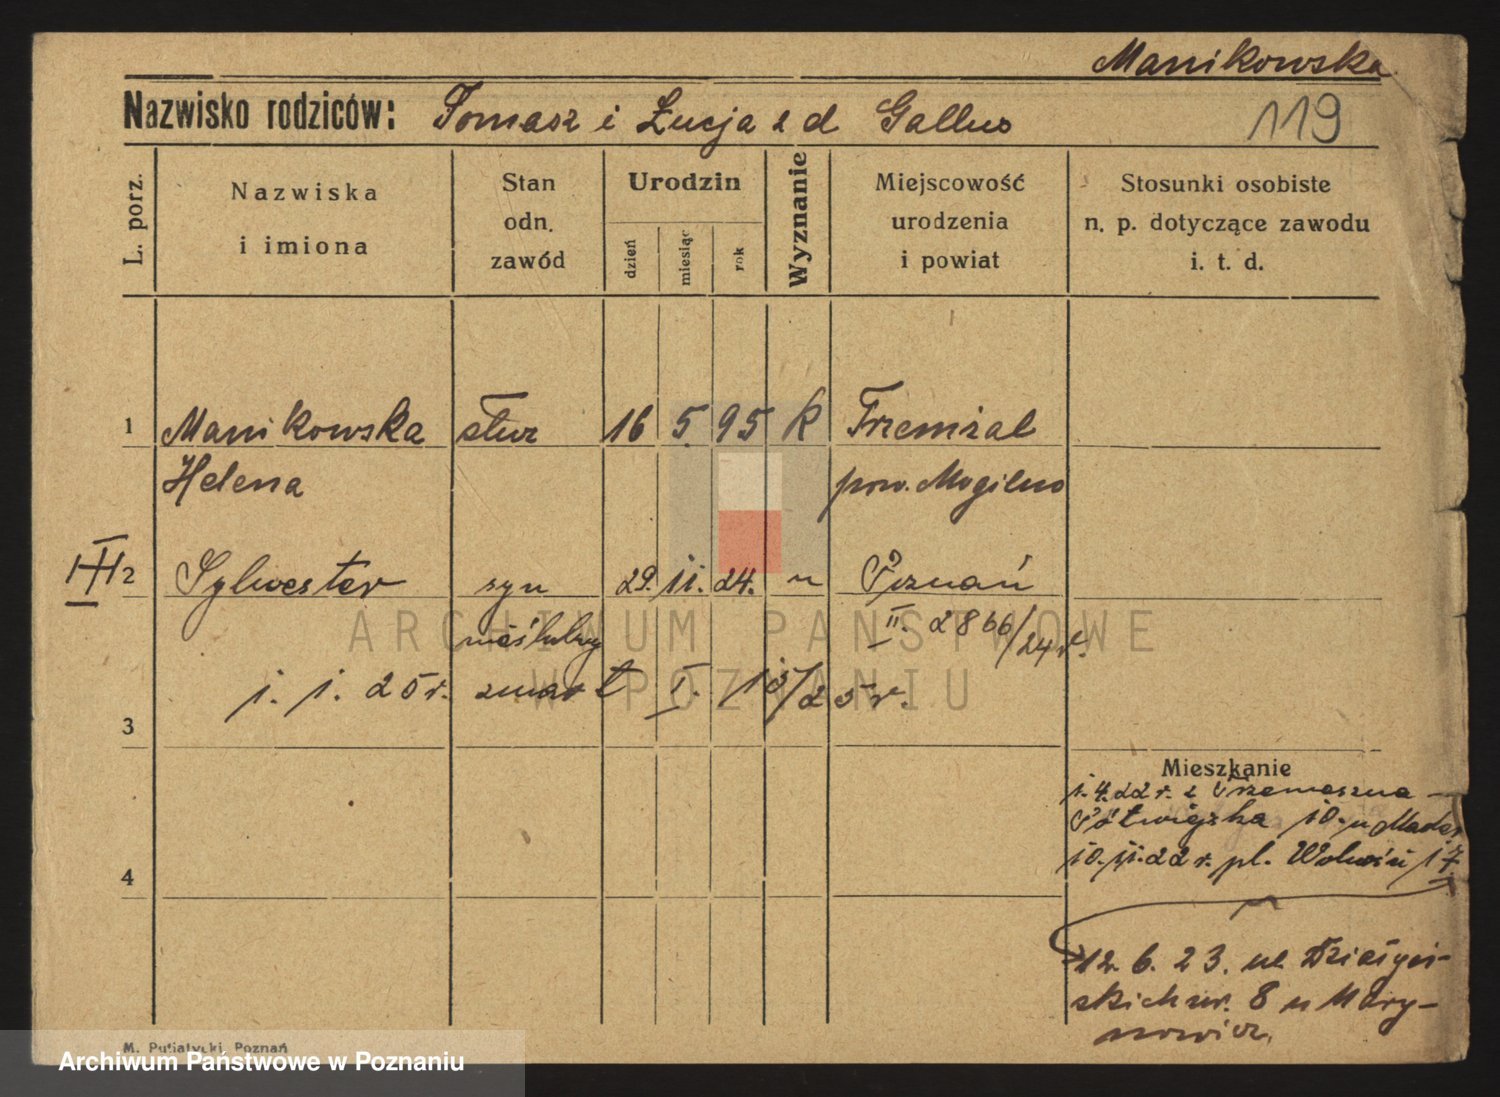 Manikowska
Nazwisko rodziców: Tomasz i Łucja z d Gallus
119
L. porz.
Nazwiska
i imiona
Stan
odn.
zawód
Urodzin
dzień
miesiąc
rok
Wyznanie
Miejscowość
urodzenia
i powiat
Stosunki osobiste
n. p. dotyczące zawodu
i. t. d.
1 Manikowska służ 16 5. 95 k Trzemżal
Helena pow. Mogilno
2 Sylwester syn 29. 11. 24. " Poznań
nieślubny II. 2866/24r.
1. 1. 25r. zmarł I. 13/25r.
3
Mieszkanie
1.4.22 r. z Trzemeszna
10. u
10.11.22 r. pl. Wolności 17
4
12. 6. 23. ul Działyń-
skich nr. 8 u Mary-
nowicz.
M. Putiatycki, Poznań
ARCHIWUM PAŃSTWOWE
W POZNANIU
Archiwum Państwowe w Poznaniu